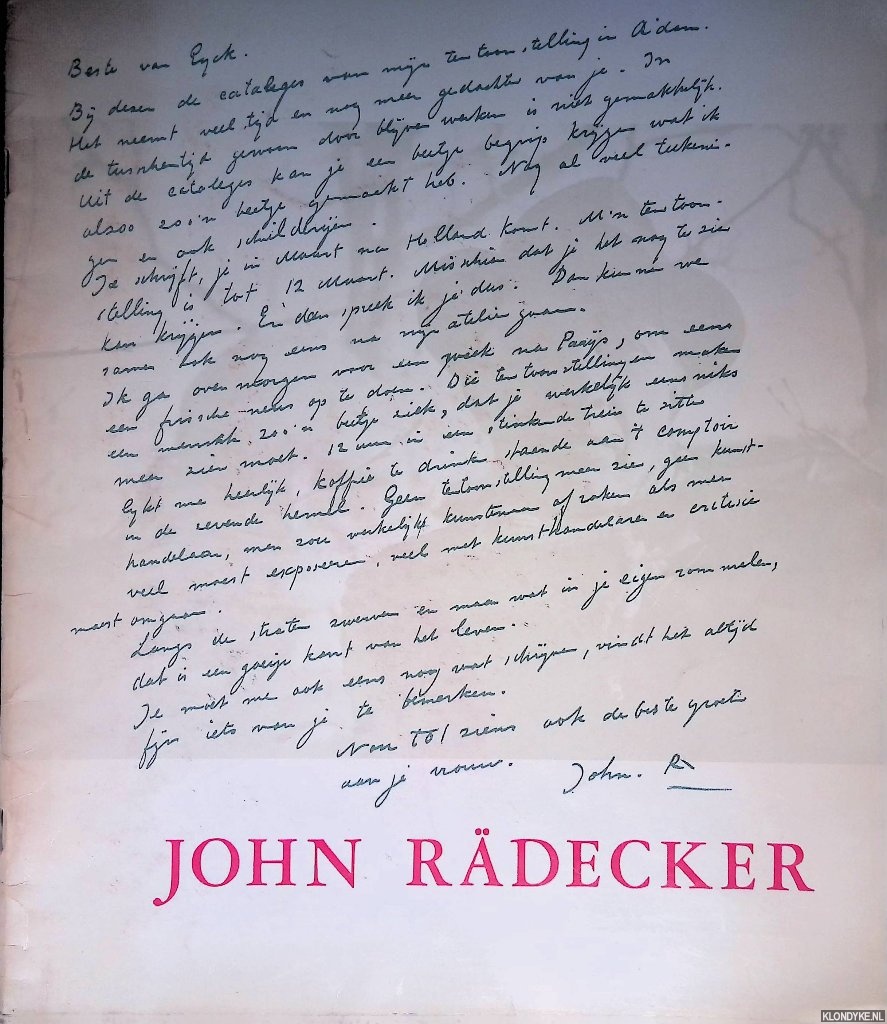 Beste van Eyck.
Bij dezen de catalogus van mijn tentoonstelling in A'dam.
Het neemt veel tijd en nog meer gedachte van je. In
de tusschentijd gewoon door blijven werken is niet gemakkelijk.
Uit de catalogus kan je een beetje begrip krijgen wat ik
alzoo zoo'n beetje gemaakt heb. Nog al veel teekenin-
gen en ook schilderijen.
Je schrijft, je in Maart na Holland komt. M'n tentoon-
stelling is tot 12 Maart. Misschien dat je het nog te zien
kan krijgen. En dan spreek ik je dus. Dan kunnen we
samen ook nog eens na mijn atelier gaan.
Ik ga overmorgen voor een week na Parijs, om eens
een frissche neus op te doen. Die tentoonstellingen maken
een mensch zoo'n beetje ziek, dat je werkelijk eens niks
meer zien moet. 12 uur in een stinkende trein te zitten
lijkt me heerlijk, koffie te drinken staande aan 't comptoir
in de zevende hemel. Geen tentoonstelling meer zien, geen kunst-
handelaar, men zou werkelijk kunstenaar af raken als men
veel moest exposeeren, veel met kunsthandelaren en critici
moest omgaan.
Langs de straten zwerven en maar wat in je eigen rommelen,
dat is een goeije kant van het leven.
Je moet me ook eens nog wat schrijven, vindt het altijd
fijn iets van je te bemerken.
Nou tot ziens ook de beste groeten
aan je vrouw. John. R
JOHN RÄDECKER
KLONDYKE.NL